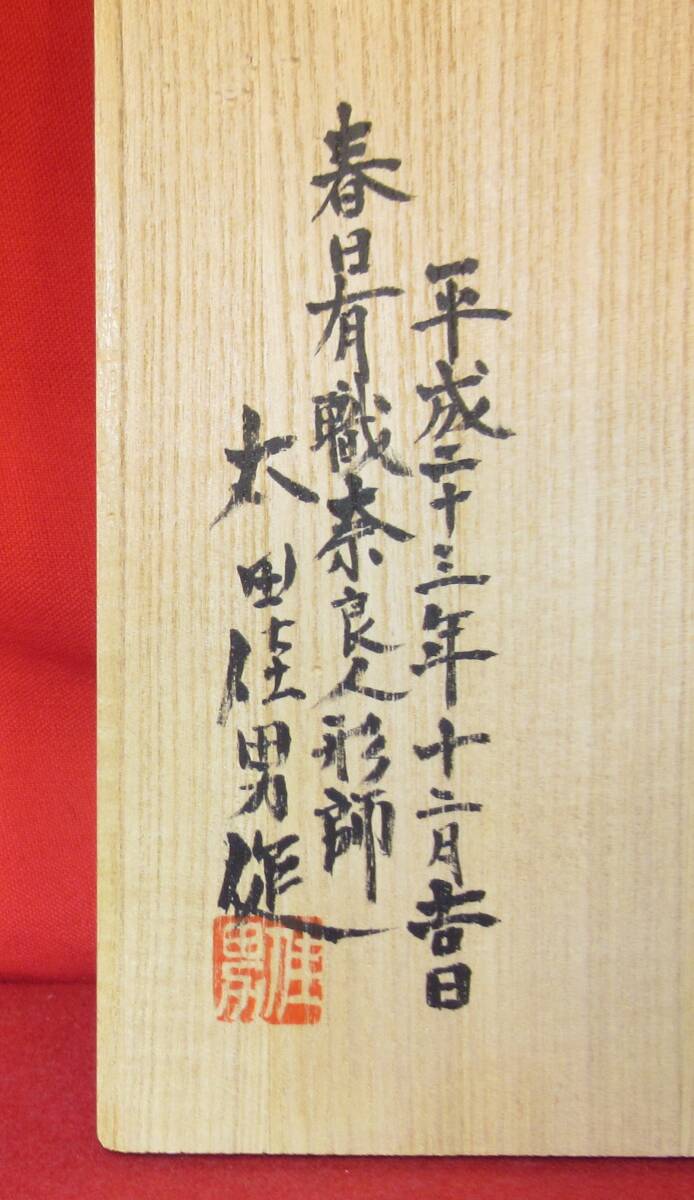 平成二十三年十二月吉日
春日有職奈良人形師
大野佳男作
佳男